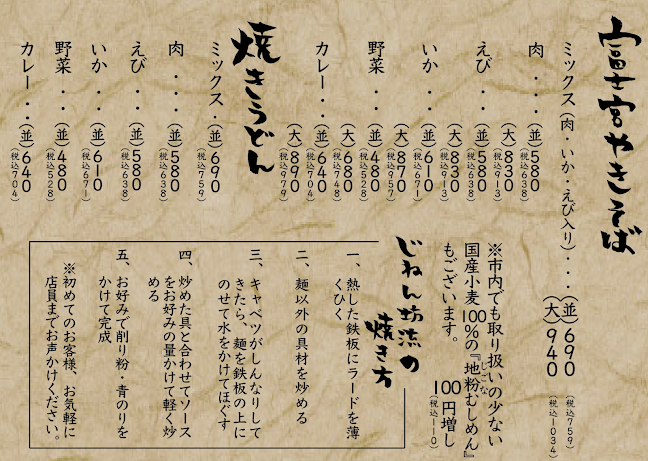 富士宮やきそば
ミックス(肉・いか・えび入り)・・・(並)690(税込759)
(大)940(税込1034)
肉・・・(並)580(税込638)
(大)830(税込913)
えび・・(並)580(税込638)
(大)830(税込913)
いか・・(並)610(税込671)
(大)870(税込957)
野菜・・(並)480(税込528)
(大)680(税込748)
カレー・・(並)640(税込704)
(大)890(税込979)
焼きうどん
ミックス・(並)690(税込759)
肉・・・(並)580(税込638)
えび・・(並)580(税込638)
いか・・(並)610(税込671)
野菜・・(並)480(税込528)
カレー・・(並)640(税込704)
※市内でも取り扱いの少ない
国産小麦100%の『地粉むしめん』
じごな
もございます。
100円増し
(税込110)
じねん坊流の
焼き方
一、熱した鉄板にラードを薄
くひく
二、麺以外の具材を炒める
三、キャベツがしんなりして
きたら、麺を鉄板の上に
のせて水をかけてほぐす
四、炒めた具と合わせてソース
をお好みの量かけて軽く炒
める
五、お好みで削り粉・青のりを
かけて完成
※初めてのお客様、お気軽に
店員までお声かけください。